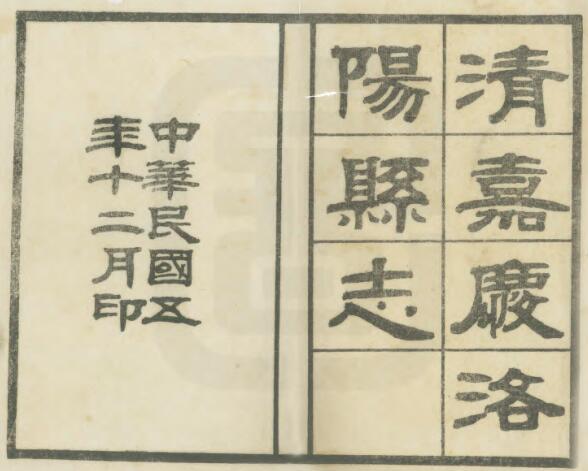 清嘉慶洛
陽縣志
中華民國五
年十二月印